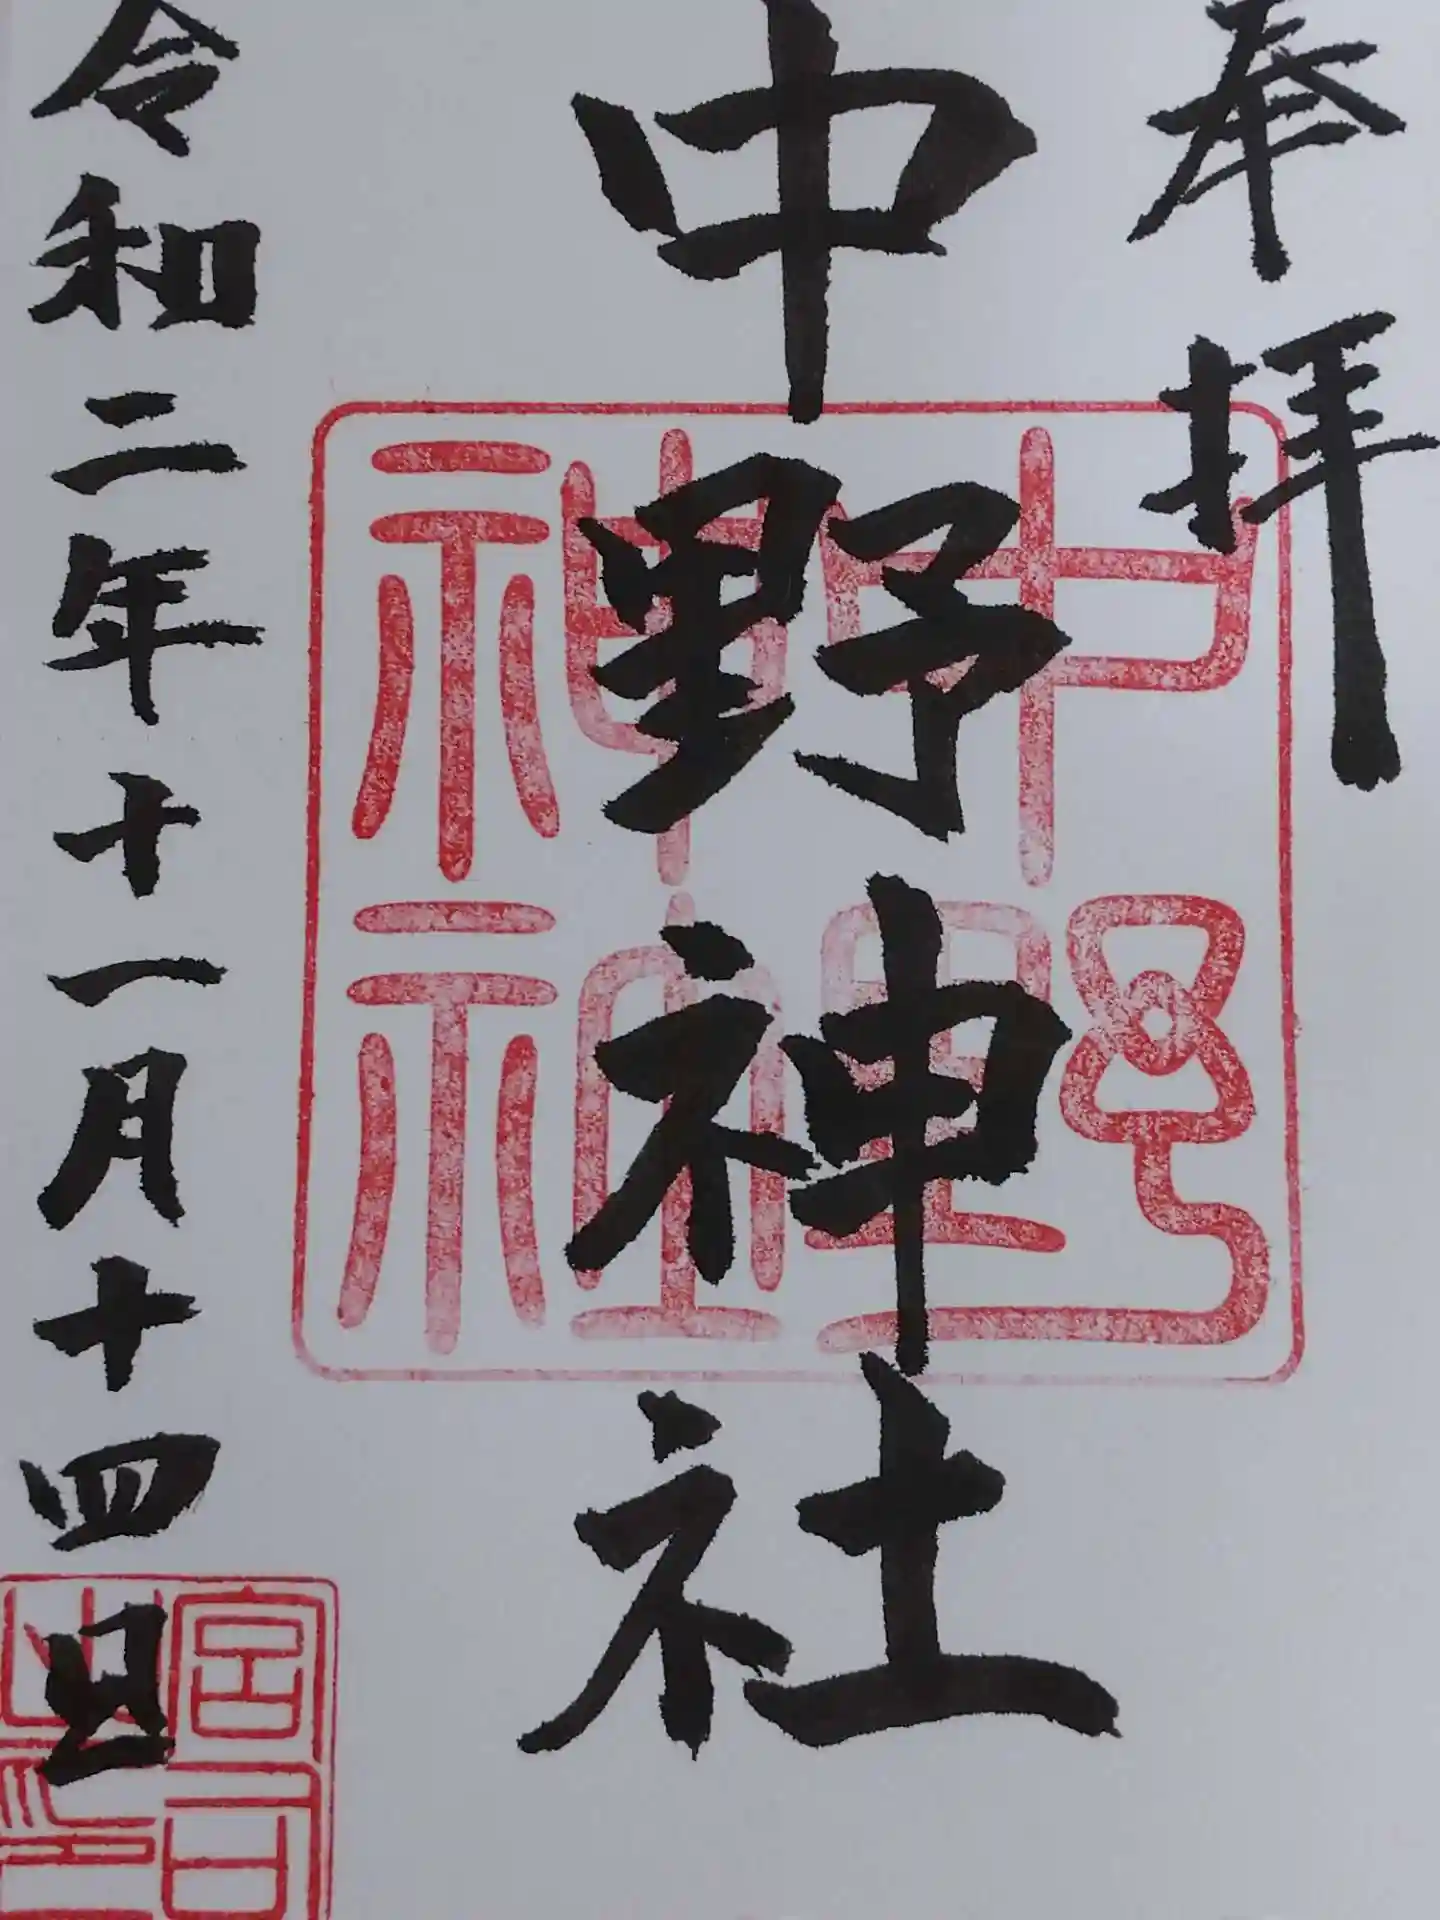 奉拝
中野神社
令和二年十一月十四日
中野神社
宮司之印